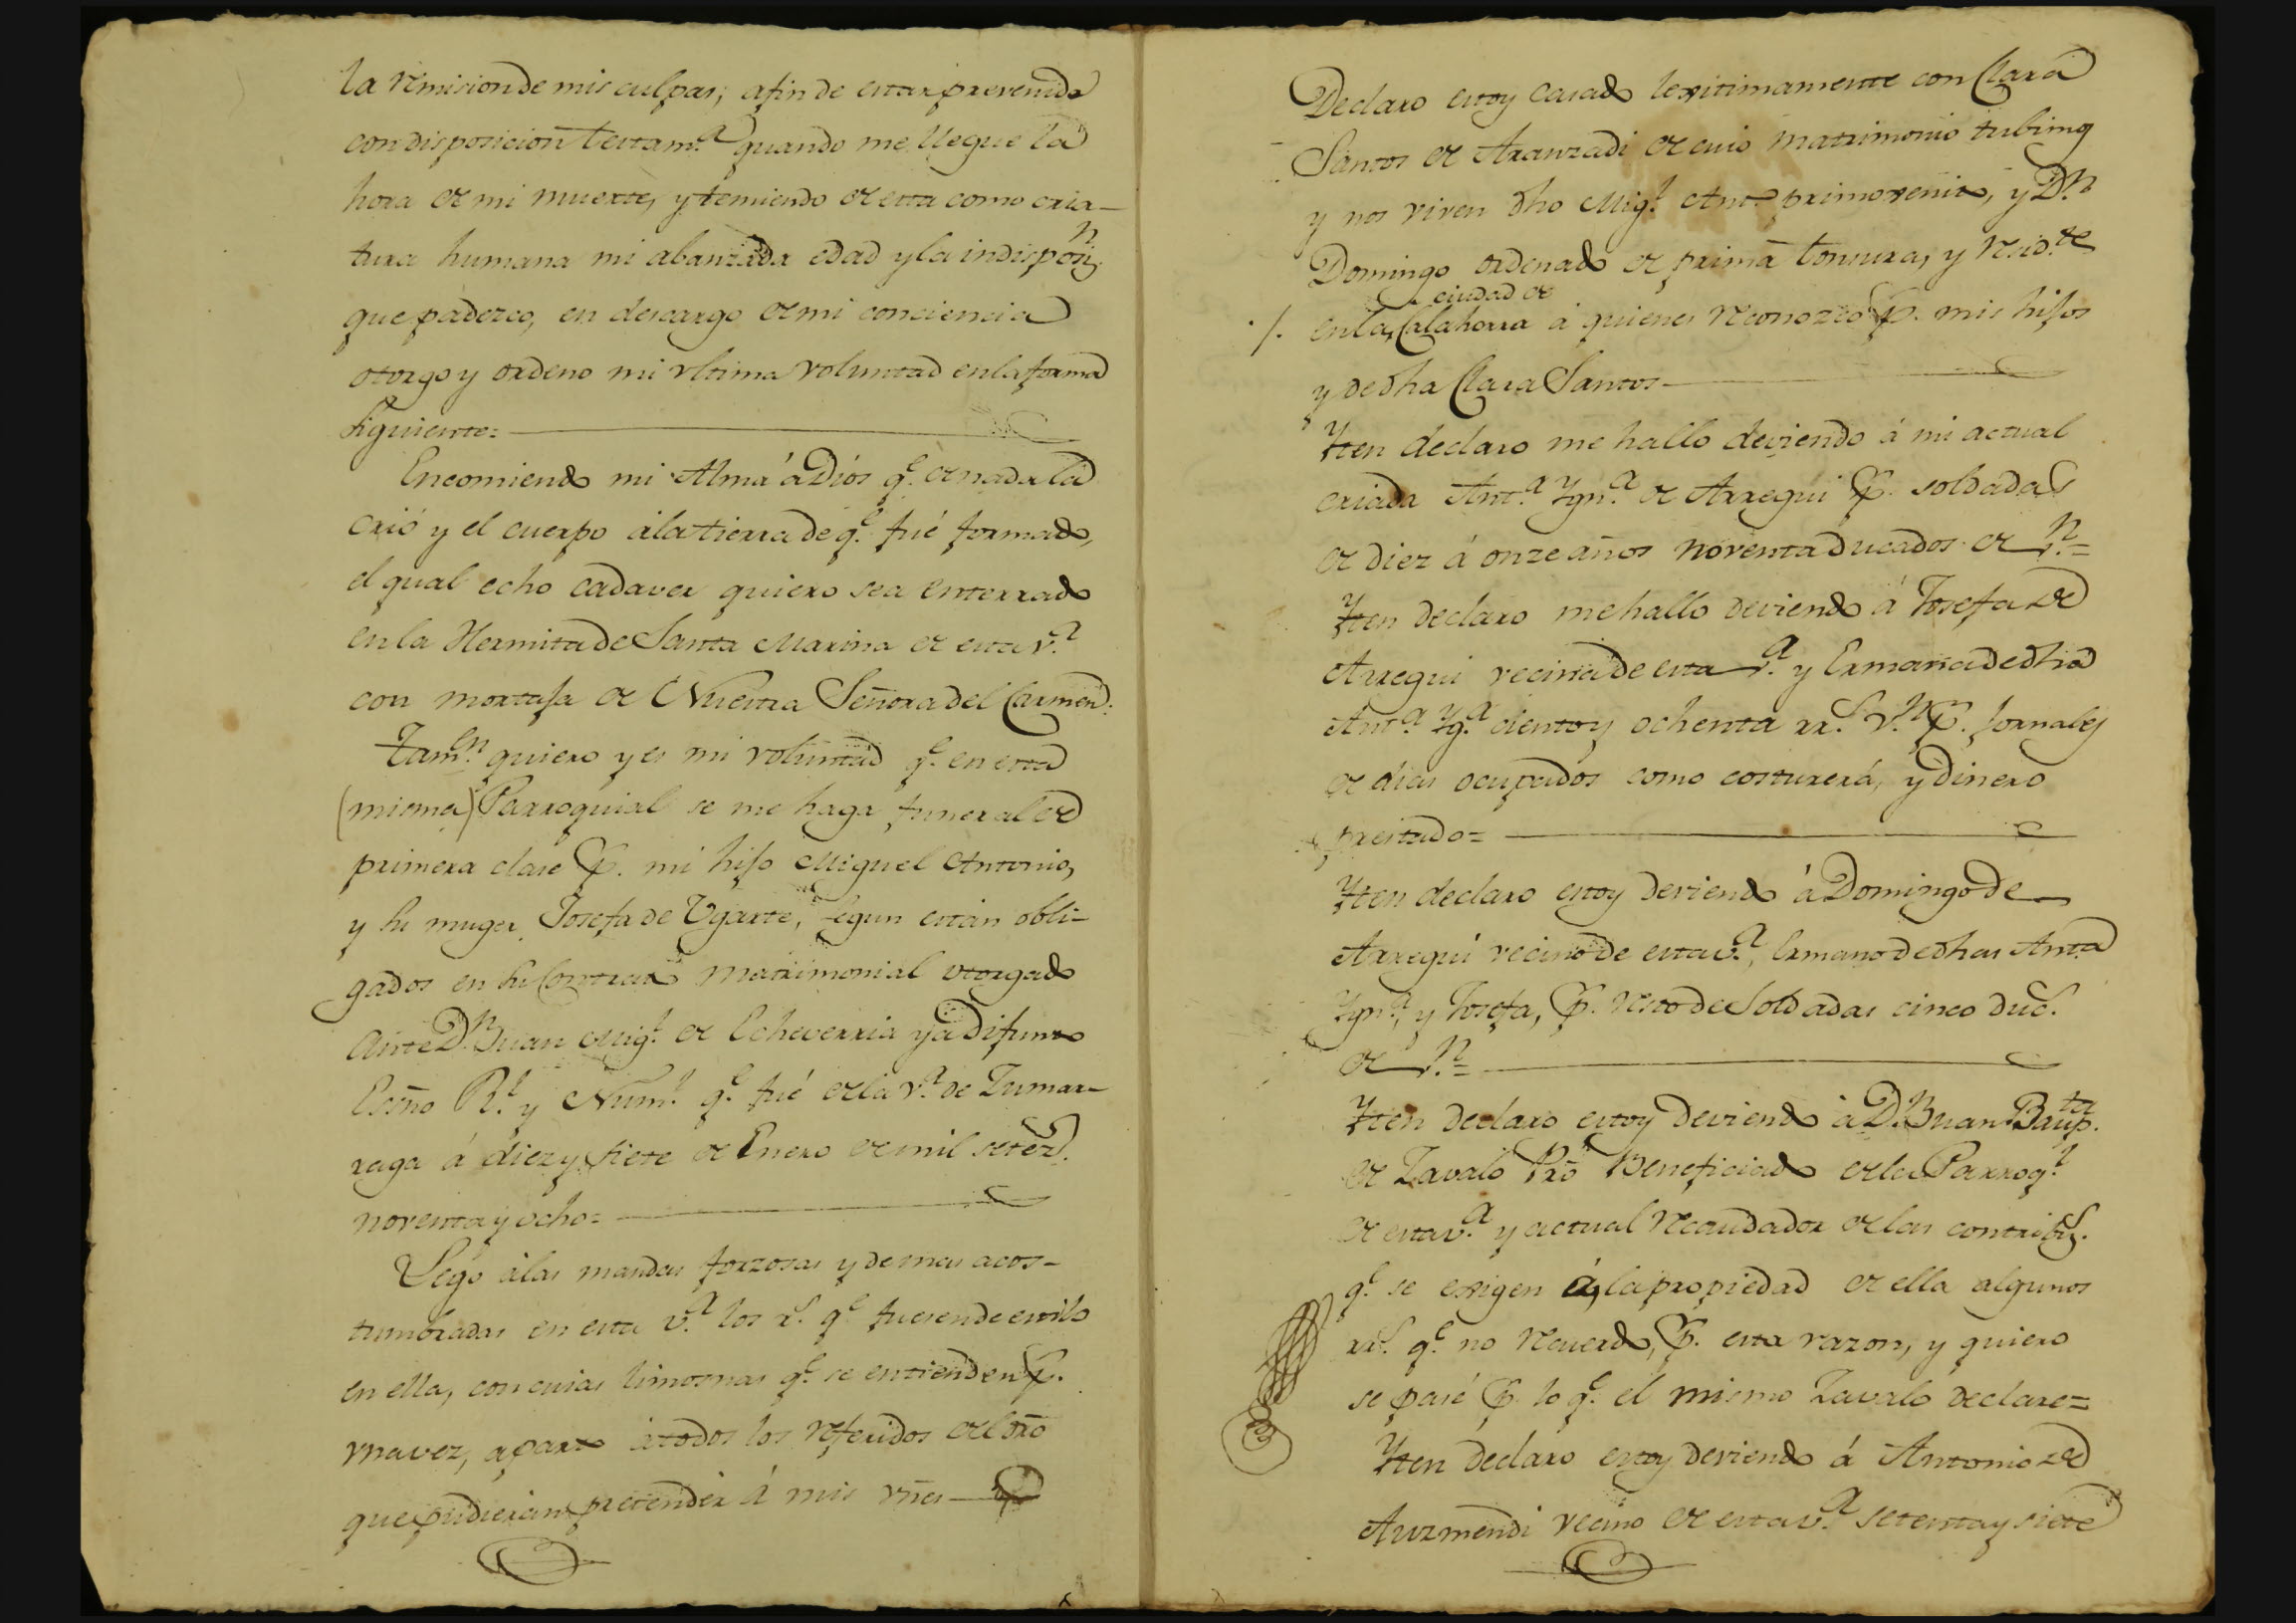 la remision de mis culpas; afin de estar prevenido
con disposicion testam.ª quando me llegue la
hora de mi muerte, y temiendo de esta como cria-
tura humana mi abanzada edad y la indisposiz.n
que padezco, en descargo de mi conciencia
otorgo y ordeno mi vltima voluntad en la forma
siguiente=
Encomiendo mi Alma á Dios q.e de nada la
crió y el cuerpo a la tierra de q.e fué formado,
el qual echo cadaver quiero sea enterrado
en la Hermita de Santa Marina de esta v.ª
con mortaja de Nuestra Señora del Carmen.
Tam.en quiero y es mi voluntad q.e en esta
(misma) Parroquial se me haga funeral de
primera clase p. mi hijo Miguel Antonio,
y su muger Josefa de Vgarte, segun están obli-
gados en su Contrato matrimonial otorgado
ante D.n Juan Mig.l de Echeverria ya difunto
Esc̃no R.l y Num.l q.e fué de la v.ª de Zumar-
raga á diez y siete de Enero de mil setez.s
noventa y ocho=
Lego a las mandas forzosas y demas acos-
tumbradas en esta v.ª los r.s q.e fueren de estilo
en ella, con cuias limosnas q.e se entienden p.
vna vez, aparto á todos los referidos del dr̃o
que pudieran pretender á mis vñes
Declaro estoy casado lexitimamente con Clara
Santos de Aranzadi de cuio matrimonio tubimos
y nos viven dho Mig.l Ant.º primoxenito, y D.n
Domingo ordenado de prima tonsura, y resid.te
ciudad de
/. en la Calahorra á quienes reconozco p. mis hijos
y de dha Clara Santos
Yten declaro me hallo deviendo á mi actual
criada Ant.ª Ygn.ª de Arregui p. soldadas
de diez á onze años noventa ducados de v.n=
Yten declaro me hallo deviendo á Josefa de
Arregui vecina de esta v.ª y Ermana de dha
Ant.ª Yg.ª ciento y ochenta rr.s v.n p. jornales
de dias ocupados como costurera, y dinero
prestado=
Yten declaro estoy deviendo á Domingo de
Arregui vecino de esta v.ª, Ermano de dhas Ant.ª
Ygn.ª, y Josefa, p. resto de Soldadas cinco duc.s
de v.n=
Yten declaro estoy deviendo á D.n Juan Baup.ta
de Zavalo Pr̃o Beneficiado de la Parroq.l
de esta v.ª y actual recaudador de las contribz.s
q.e se exigen á la propiedad de ella algunos
rr.s q.e no recuerdo, p. esta razon, y quiero
se pase p. lo q.e el mismo Zavalo declare=
Yten declaro estoy deviendo á Antonio de
Auzmendi vecino de esta v.ª setenta y siete